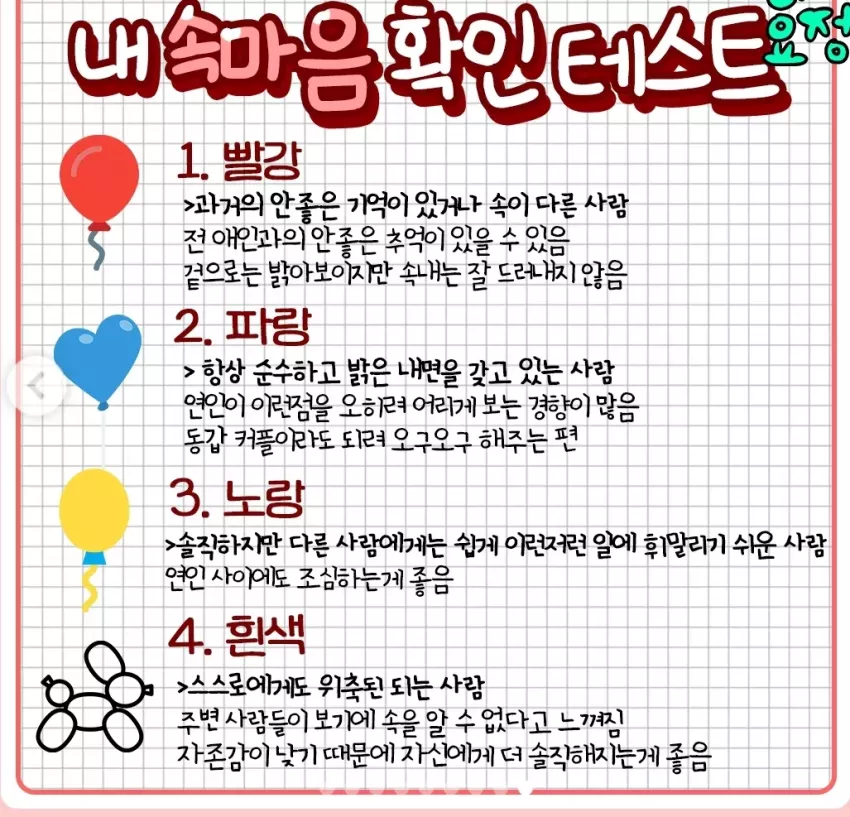 요정
내 속마음 확인 테스트
1. 빨강
>과거의 안좋은 기억이 있거나 속이 다른 사람
전 애인과의 안좋은 추억이 있을 수 있음
겉으로는 밝아보이지만 속내는 잘 드러내지 않음
2. 파랑
> 항상 순수하고 밝은 내면을 갖고 있는 사람
연인이 이런점을 오히려 어리게 보는 경향이 많음
동갑 커플이라도 되려 오구오구 해주는 편
3. 노랑
>솔직하지만 다른 사람에게는 쉽게 이런저런 일에 휘말리기 쉬운 사람
연인 사이에도 조심하는게 좋음
4. 흰색
>스스로에게도 위축된 되는 사람
주변 사람들이 보기에 속을 알 수 없다고 느껴짐
자존감이 낮기 때문에 자신에게 더 솔직해지는게 좋음